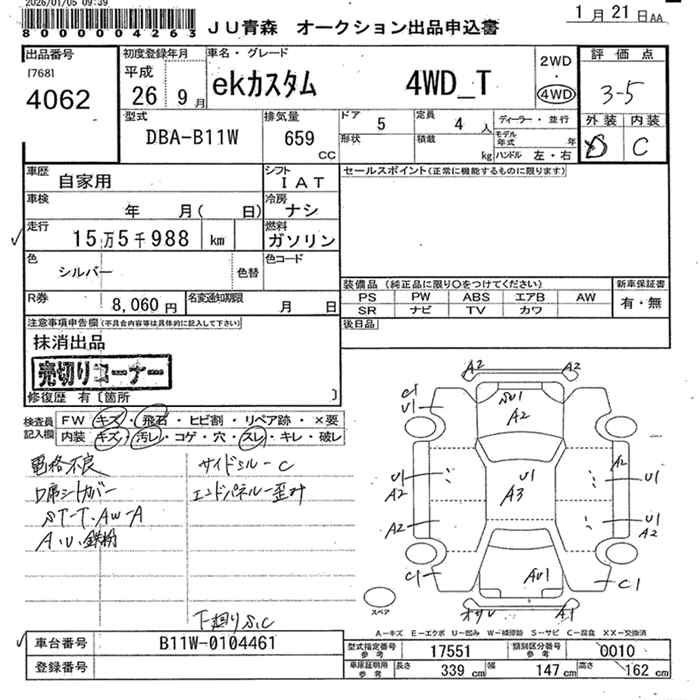 2026/01/05 09:39
8000004263
JU青森 オークション出品申込書
1月21日AA
出品番号
17681
4062
初度登録年月
平成
26 9月
車名・グレード
ekカスタム 4WD_T
2WD
・
4WD
評価点
3-5
外装 内装
D C
型式
DBA-B11W
排気量
659
CC
ドア 5
形状
定員 4 人
積載 kg
ディーラー・並行
モデル年式 年
ハンドル 左・右
車歴
自家用
シフト
IAT
車検
年 月( 日)
冷房
ナシ
走行
15万5千988 km
燃料
ガソリン
色
シルバー
色替
色コード
R券
8,060円
名変通知期限
月 日
セールスポイント(正常に機能するものに限ります)
装備品(純正品に限り○をつけてください)
PS PW ABS エアB AW
SR ナビ TV カワ
新車保証書
有・無
後日品
注意事項申告欄(不具合内容等は具体的に記入して下さい)
抹消出品
売切りコーナー
修復歴 有〔箇所 〕
検査員記入欄
FW キズ・飛石・ヒビ割・リペア跡・×要
内装 キズ・汚レ・コゲ・穴・スレ・キレ・破レ
電格不良
D席シートカバー
ST-T.AW-A
A.U.鉄粉
サイドシル-C
エンドパネル-歪み
下廻りS.C
A2 A2
C1
U1
SU1
A2
U1
A2
U1
A3
A2
U1
A2
U1
A2
C1
AU1
C1
A1
スペア
A-キズ E-エクボ U-凹み W-補修跡 S-サビ C-腐食 XX-交換済
車台番号
B11W-0104461
登録番号
型式指定番号
参考
17551
類別区分番号
参考
0010
車庫証明用
参考
長さ 339 cm
幅 147 cm
高さ 162 cm